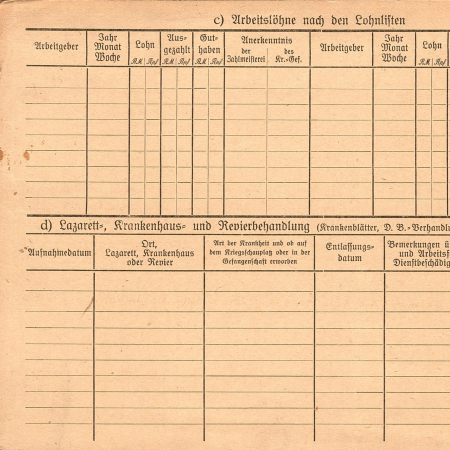 c) Arbeitslöhne nach den Lohnlisten
Arbeitgeber
Jahr
Monat
Woche
Lohn
RM Rpf
Aus-
gezahlt
RM Rpf
Gut-
haben
RM Rpf
Anerkenntnis
der
Zahlmeisterei
des
Kr.-Gef.
Arbeitgeber
Jahr
Monat
Woche
Lohn
RM Rpf
d) Lazarett-, Krankenhaus- und Revierbehandlung (Krankenblätter, D. B.-Verhandlu
Aufnahmedatum
Ort,
Lazarett, Krankenhaus
oder Revier
Art der Krankheit und ob auf
dem Kriegsschauplatz oder in der
Gefangenschaft erworben
Entlassungs-
datum
Bemerkungen ü
und Arbeitsf
Dienstbeschädig